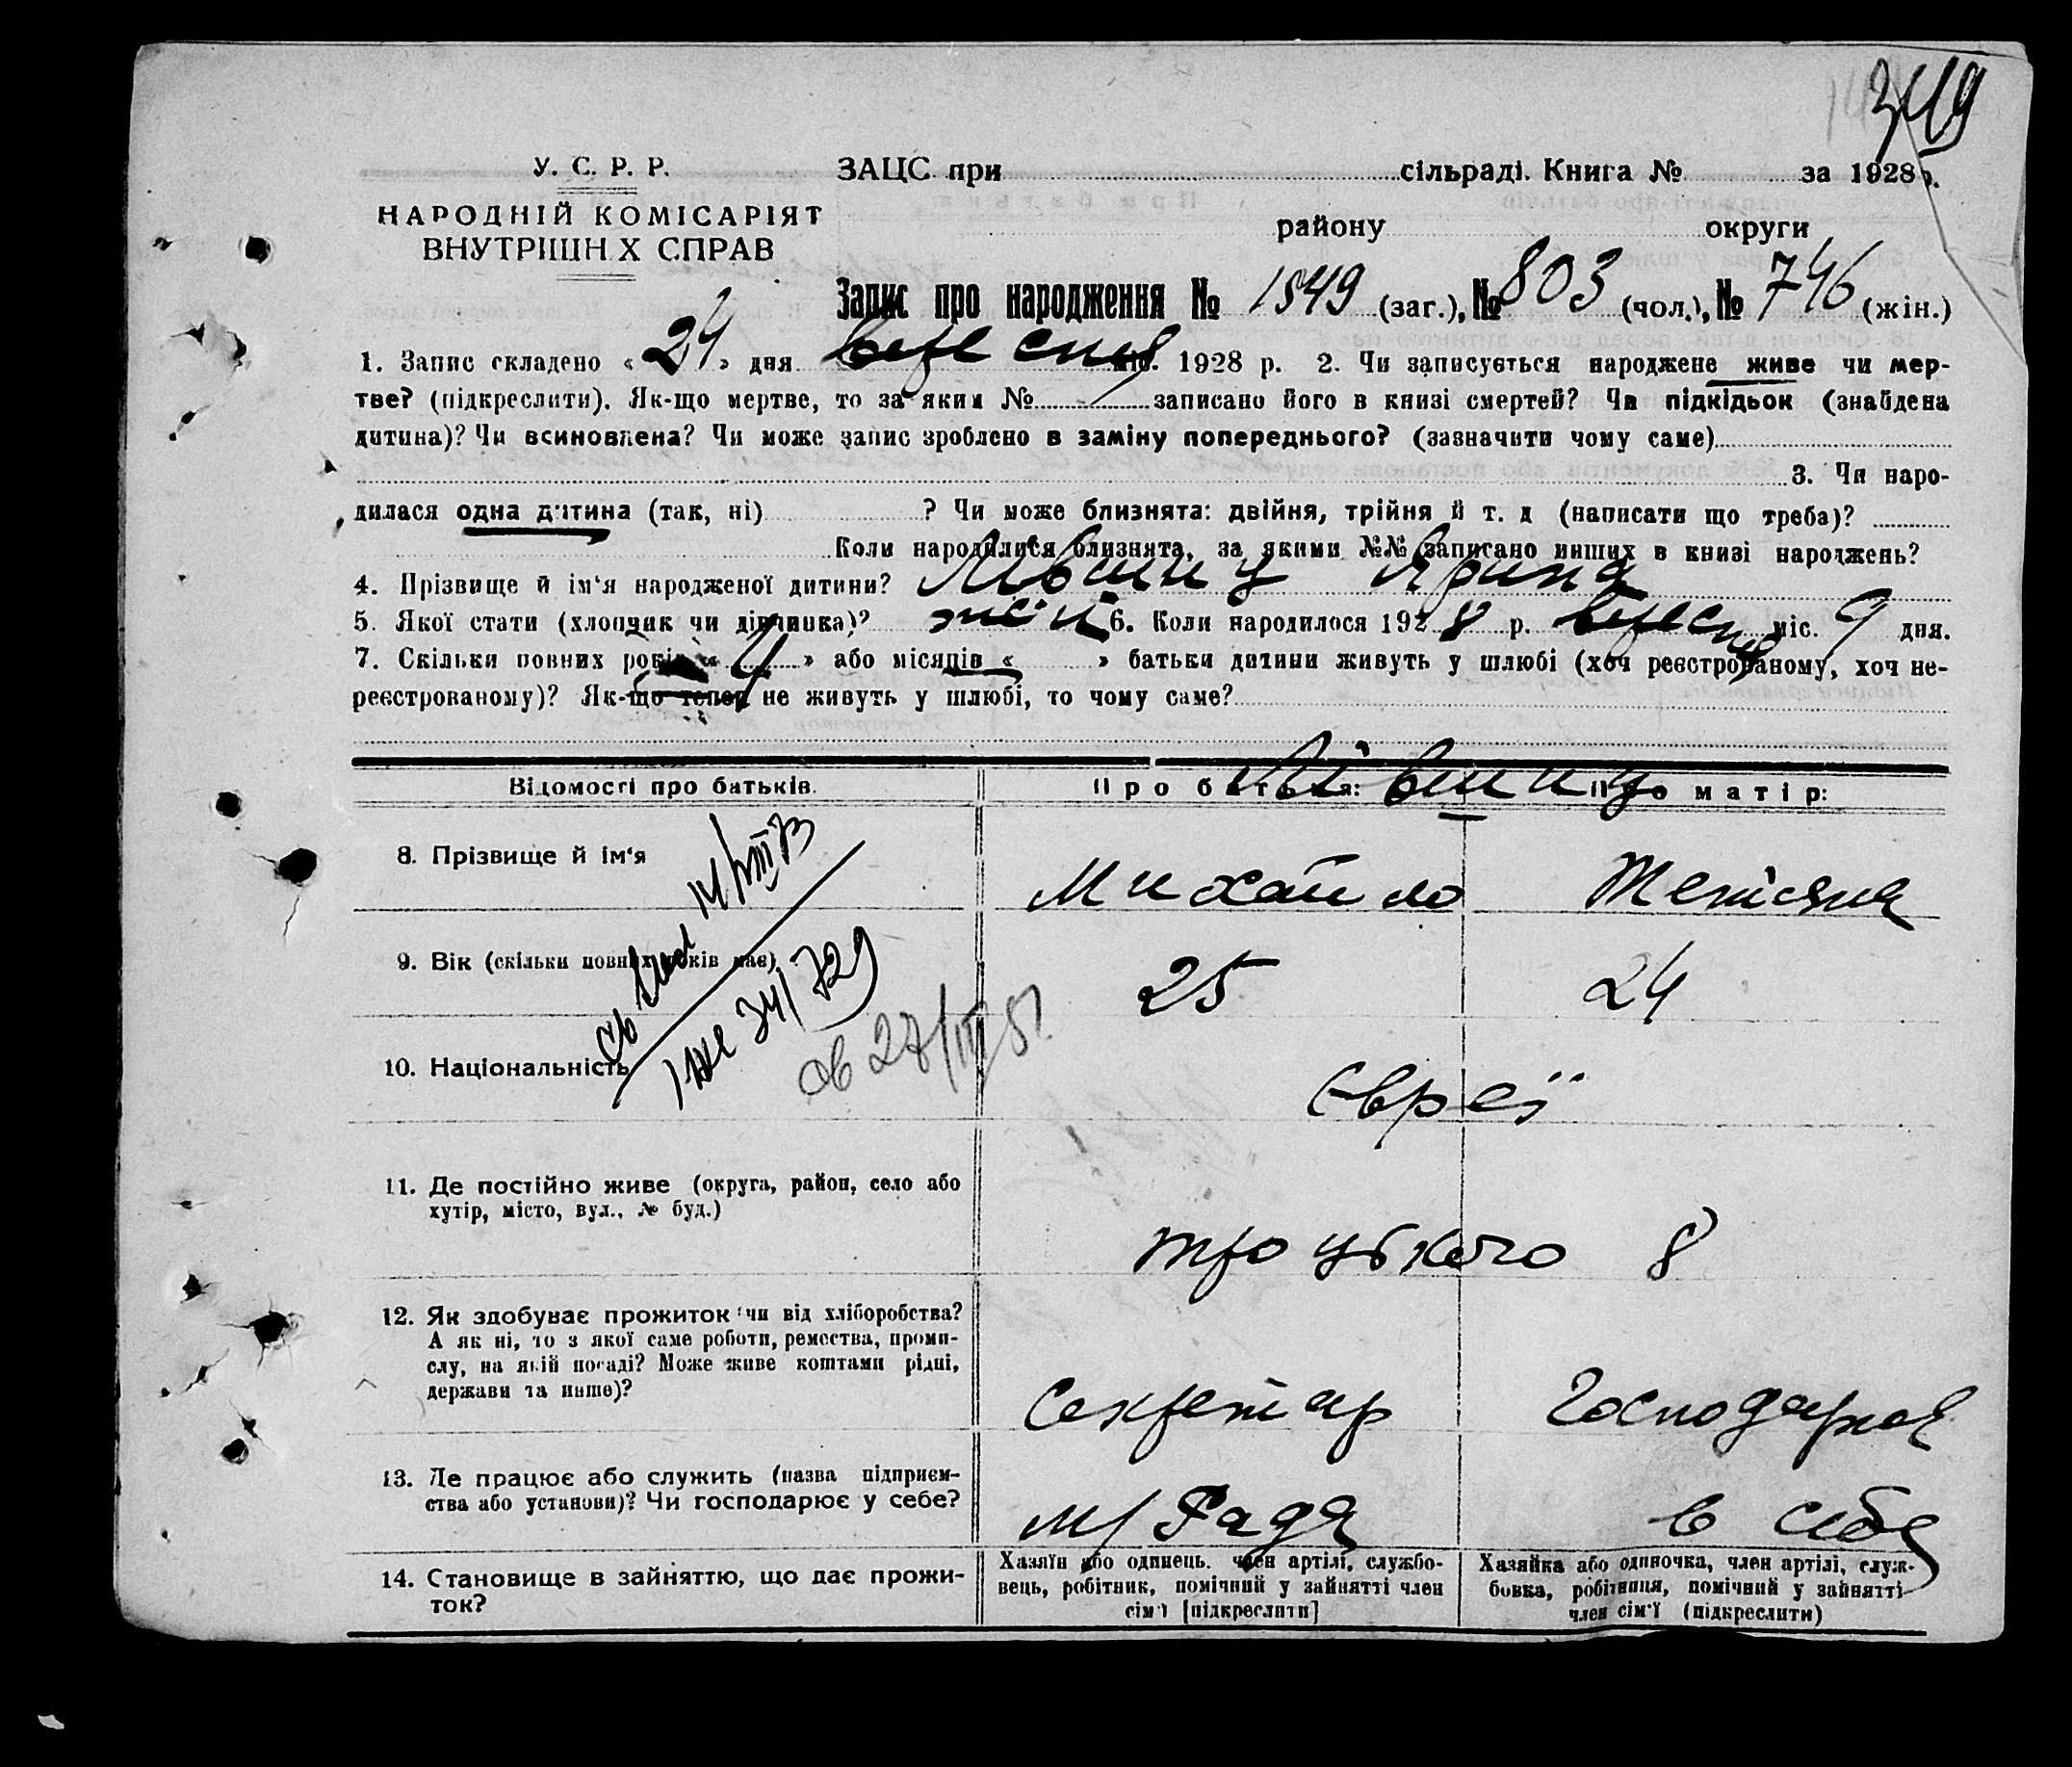 3419
У. С. Р. Р. ЗАЦС при сільраді. Книга № за 1928 р.
НАРОДНІЙ КОМІСАРІЯТ
ВНУТРІШН Х СПРАВ
району округи
Запис про народження № 1549 (заг.), № 803 (чол.), № 746 (жін.)
1. Запис складено « 24 » дня вересня міс. 1928 р. 2. Чи записується народжене живе чи мер-
тве? (підкреслити). Як-що мертве, то за яким № записано його в книзі смертей? Чи підкідьок (знайдена
дитина)? Чи всиновлена? Чи може запис зроблено в заміну попереднього? (зазначити чому саме)
3. Чи наро-
дилася одна дитина (так, ні) ? Чи може близнята: двійня, трійня й т. д (написати що треба)?
Коли народилися близнята, за якими №№ записано инших в книзі народжень?
4. Прізвище й ім‘я народженої дитини? Лівшиц Ярина
5. Якої стати (хлопчик чи дівчинка)? жін 6. Коли народилося 1928 р. вересня міс. 9 дня.
7. Скільки повних років « 4 » або місяців « » батьки дитини живуть у шлюбі (хоч реєстрованому, хоч не-
реєстрованому)? Як-що тепер не живуть у шлюбі, то чому саме?
Лівшиц
Відомості про батьків. Про батька: Про матір:
8. Прізвище й ім‘я Михайло Тетяна
9. Вік (скільки повних років має) 25 24
10. Національність Євреї
ов 27/III 51
11. Де постійно живе (округа, район, село або
хутір, місто, вул., № буд.)
Троцького 8
12. Як здобуває прожиток чи від хліборобства?
А як ні, то з якої саме роботи, ремества, проми-
слу, на якій посаді? Може живе коштами рідні,
держави та инше)?
Секретар Господарка
13. Де працює або служить (назва підприєм-
ства або установи)? Чи господарює у себе?
м/Рада в себе
14. Становище в зайняттю, що дає прожи-
ток?
Хазяїн або одинець, член артілі, службо-
вець, робітник, помічний у зайнятті член
сім‘ї [підкреслити]
Хазяйка або одиночка, член артілі, служ-
бовка, робітниця, помічний у зайнятті
член сім‘ї (підкреслити)